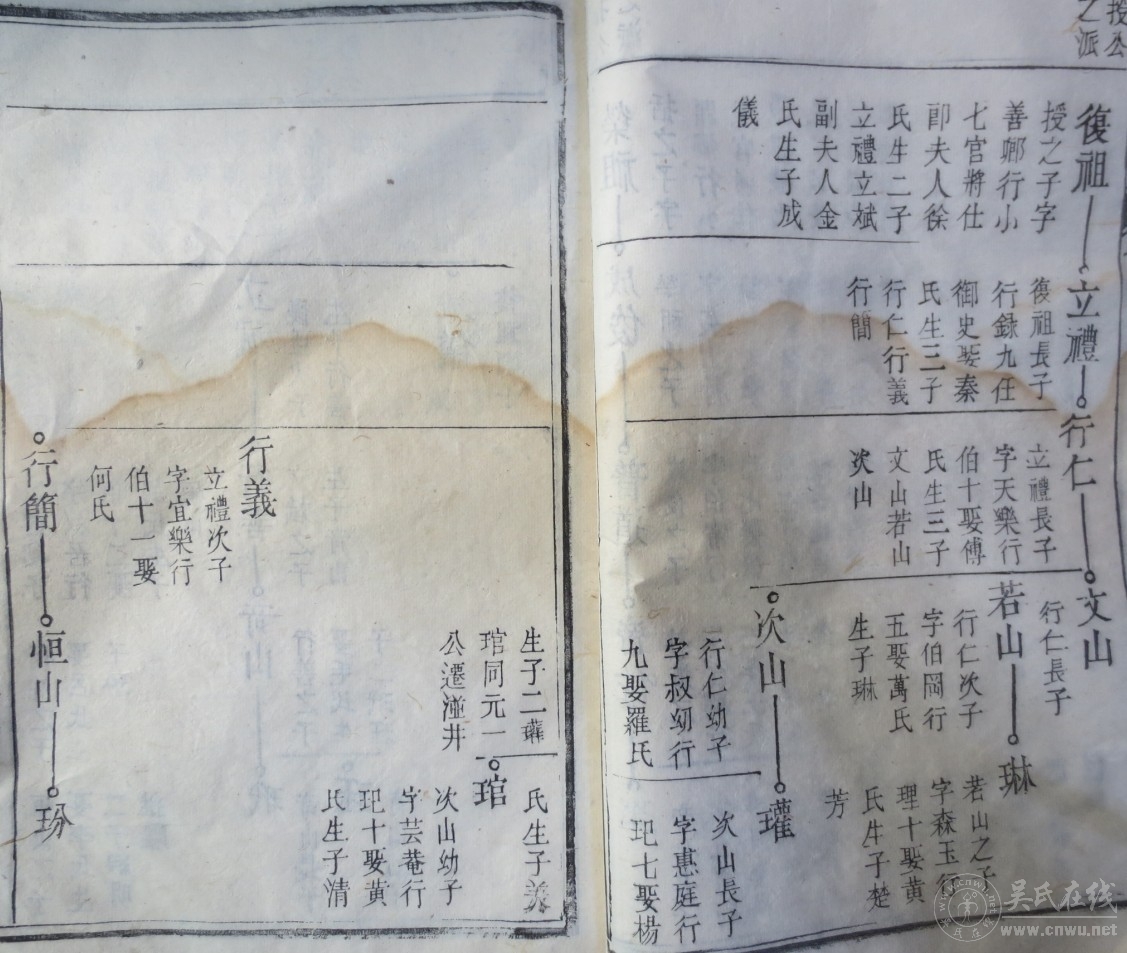 授公
之派
復祖
授之子字
善卿行小
七官將仕
郎夫人徐
氏生二子
立禮立斌
副夫人金
氏生子成
儀
立禮
復祖長子
行録九任
御史娶秦
氏生三子
行仁行義
行簡
行仁
立禮長子
字天樂行
伯十娶傅
氏生三子
文山若山
次山
文山
行仁長子
若山
行仁次子
字伯岡行
五娶萬氏
生子琳
琳
若山之子
字森玉行
理十娶黄
氏生子楚
芳
次山
行仁幼子
字叔㓜行
九娶羅氏
瓘
次山長子
字惠庭行
玘七娶楊
氏生子義
生子二瓘
琯同元一
公遷湴井
琯
次山幼子
字芸菴行
玘十娶黄
氏生子清
行義
立禮次子
字宜樂行
伯十一娶
何氏
行簡
恒山
玢
吴氏在线
www.cnwu.net